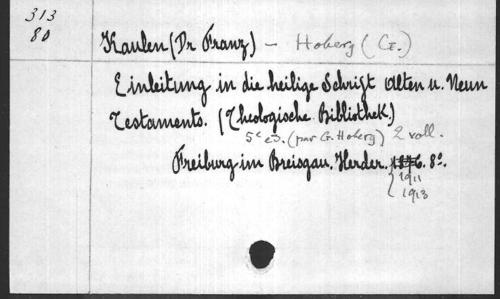 313
80
Kaulen (Dr Franz) - Hoberg (G.)
Einleitung in die heilige Schrift Alten u. Neuen
Testaments. (Theologische Bibliothek.)
5e ed. (par G. Hoberg) 2 voll.
Freiburg im Breisgau. Herder. 1876. 8º.
1911
1913